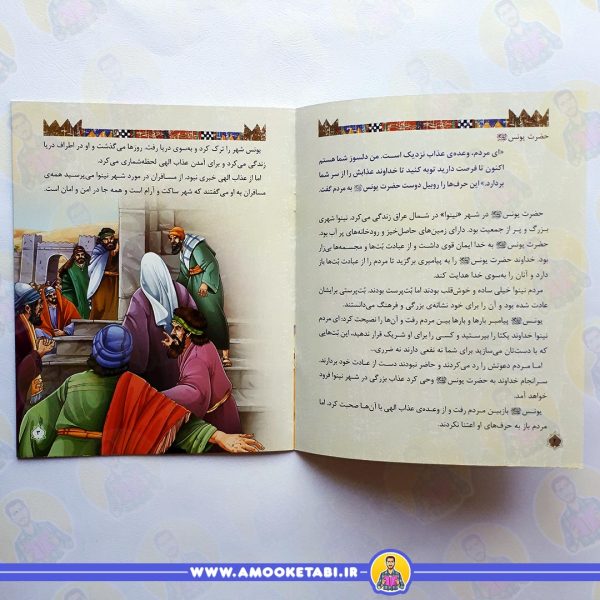 حضرت یونس
«ای مردم، وعده‌ی عذاب نزدیک است. من دلسوز شما هستم
اکنون تا فرصت دارید توبه کنید تا خداوند عذابش را از سر شما
بردارد.» این حرف‌ها را روبیل دوست حضرت یونس به مردم گفت.
حضرت یونس در شهر «نینوا» در شمال عراق زندگی می‌کرد. نینوا شهری
بزرگ و پر از جمعیت بود. دارای زمین‌های حاصل‌خیز و رودخانه‌های پر آب بود.
حضرت یونس به خدا ایمان قوی داشت و از عبادت بُت‌ها و مجسمه‌ها بی‌زار
بود. خداوند حضرت یونس را به پیامبری برگزید تا مردم را از عبادت بُت‌ها باز
دارد و آنان را به‌سوی خدا هدایت کند.
مردم نینوا خیلی ساده و خوش‌قلب بودند اما بُت‌پرست بودند. بُت‌پرستی برایشان
عادت شده بود و آن را برای خود نشانه‌ی بزرگی و فرهنگ می‌دانستند.
یونس پیامبر بارها و بارها بین مردم رفت و آن‌ها را نصیحت کرد: ای مردم
نینوا خداوند یکتا را بپرستید و کسی را برای او شریک قرار ندهید، این بُت‌هایی
که با دست‌تان می‌سازید برای شما نه نفعی دارند نه ضرری..
اما مردم دعوتش را رد می‌کردند و حاضر نبودند دست از عبادت خود بردارند.
سرانجام خداوند به حضرت یونس وحی کرد عذاب بزرگی در شهر نینوا فرود
خواهد آمد.
یونس بازبین مردم رفت و از وعده‌ی عذاب الهی با آن‌ها صحبت کرد. اما
مردم باز به حرف‌های او اعتنا نکردند.
یونس شهر را ترک کرد و به‌سوی دریا رفت. روزها می‌گذشت و او در اطراف دریا
زندگی می‌کرد و برای آمدن عذاب الهی لحظه‌شماری می‌کرد.
اما از عذاب الهی خبری نبود. از مسافران در مورد شهر نینوا می‌پرسید همه‌ی
مسافران به او می‌گفتند که شهر ساکت و آرام است و همه جا در امن و امان است.
WWW.AMOOKETABI.IR